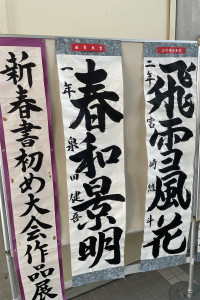 飛雪風花
二年 宮崎 悠斗
春和景明
一年 泉田 健吾
新春書初め大会作品展